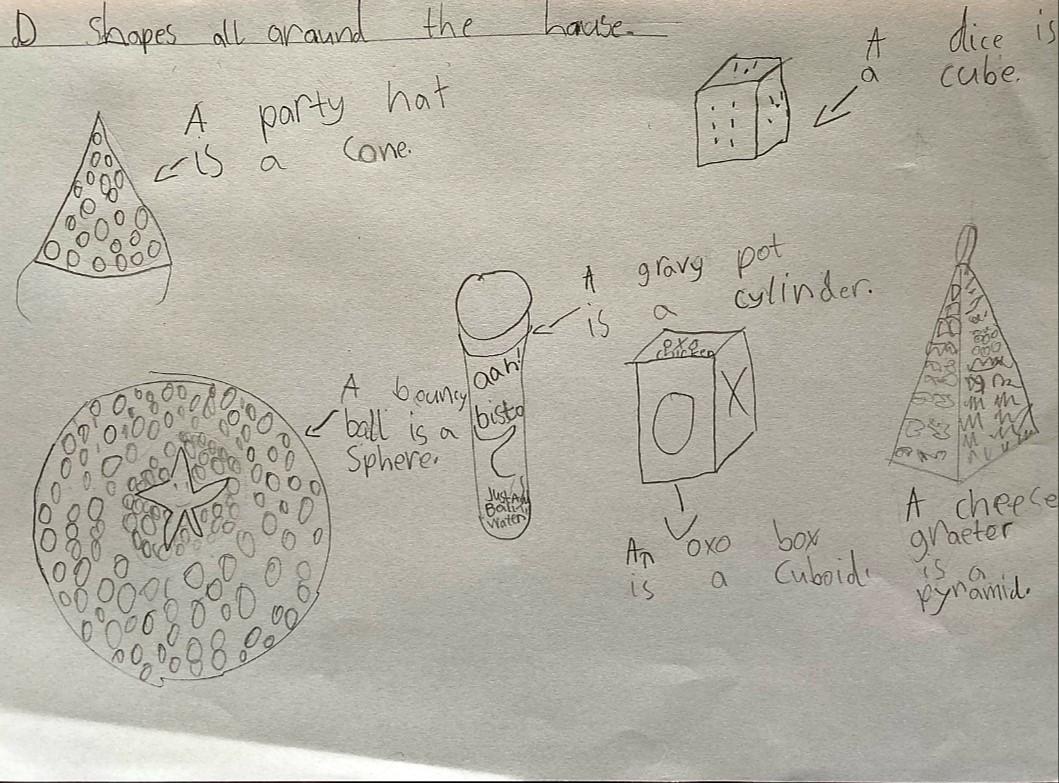 D shapes all around the house.
A dice is
a cube.
A party hat
is a cone.
A gravy pot
is a cylinder.
aah!
bisto
Just Add
Boiling
Water
oxo
chicken
O
X
A bouncy
ball is a
Sphere.
An oxo box
is a cuboid.
A cheese
graeter
is a
pyramid.